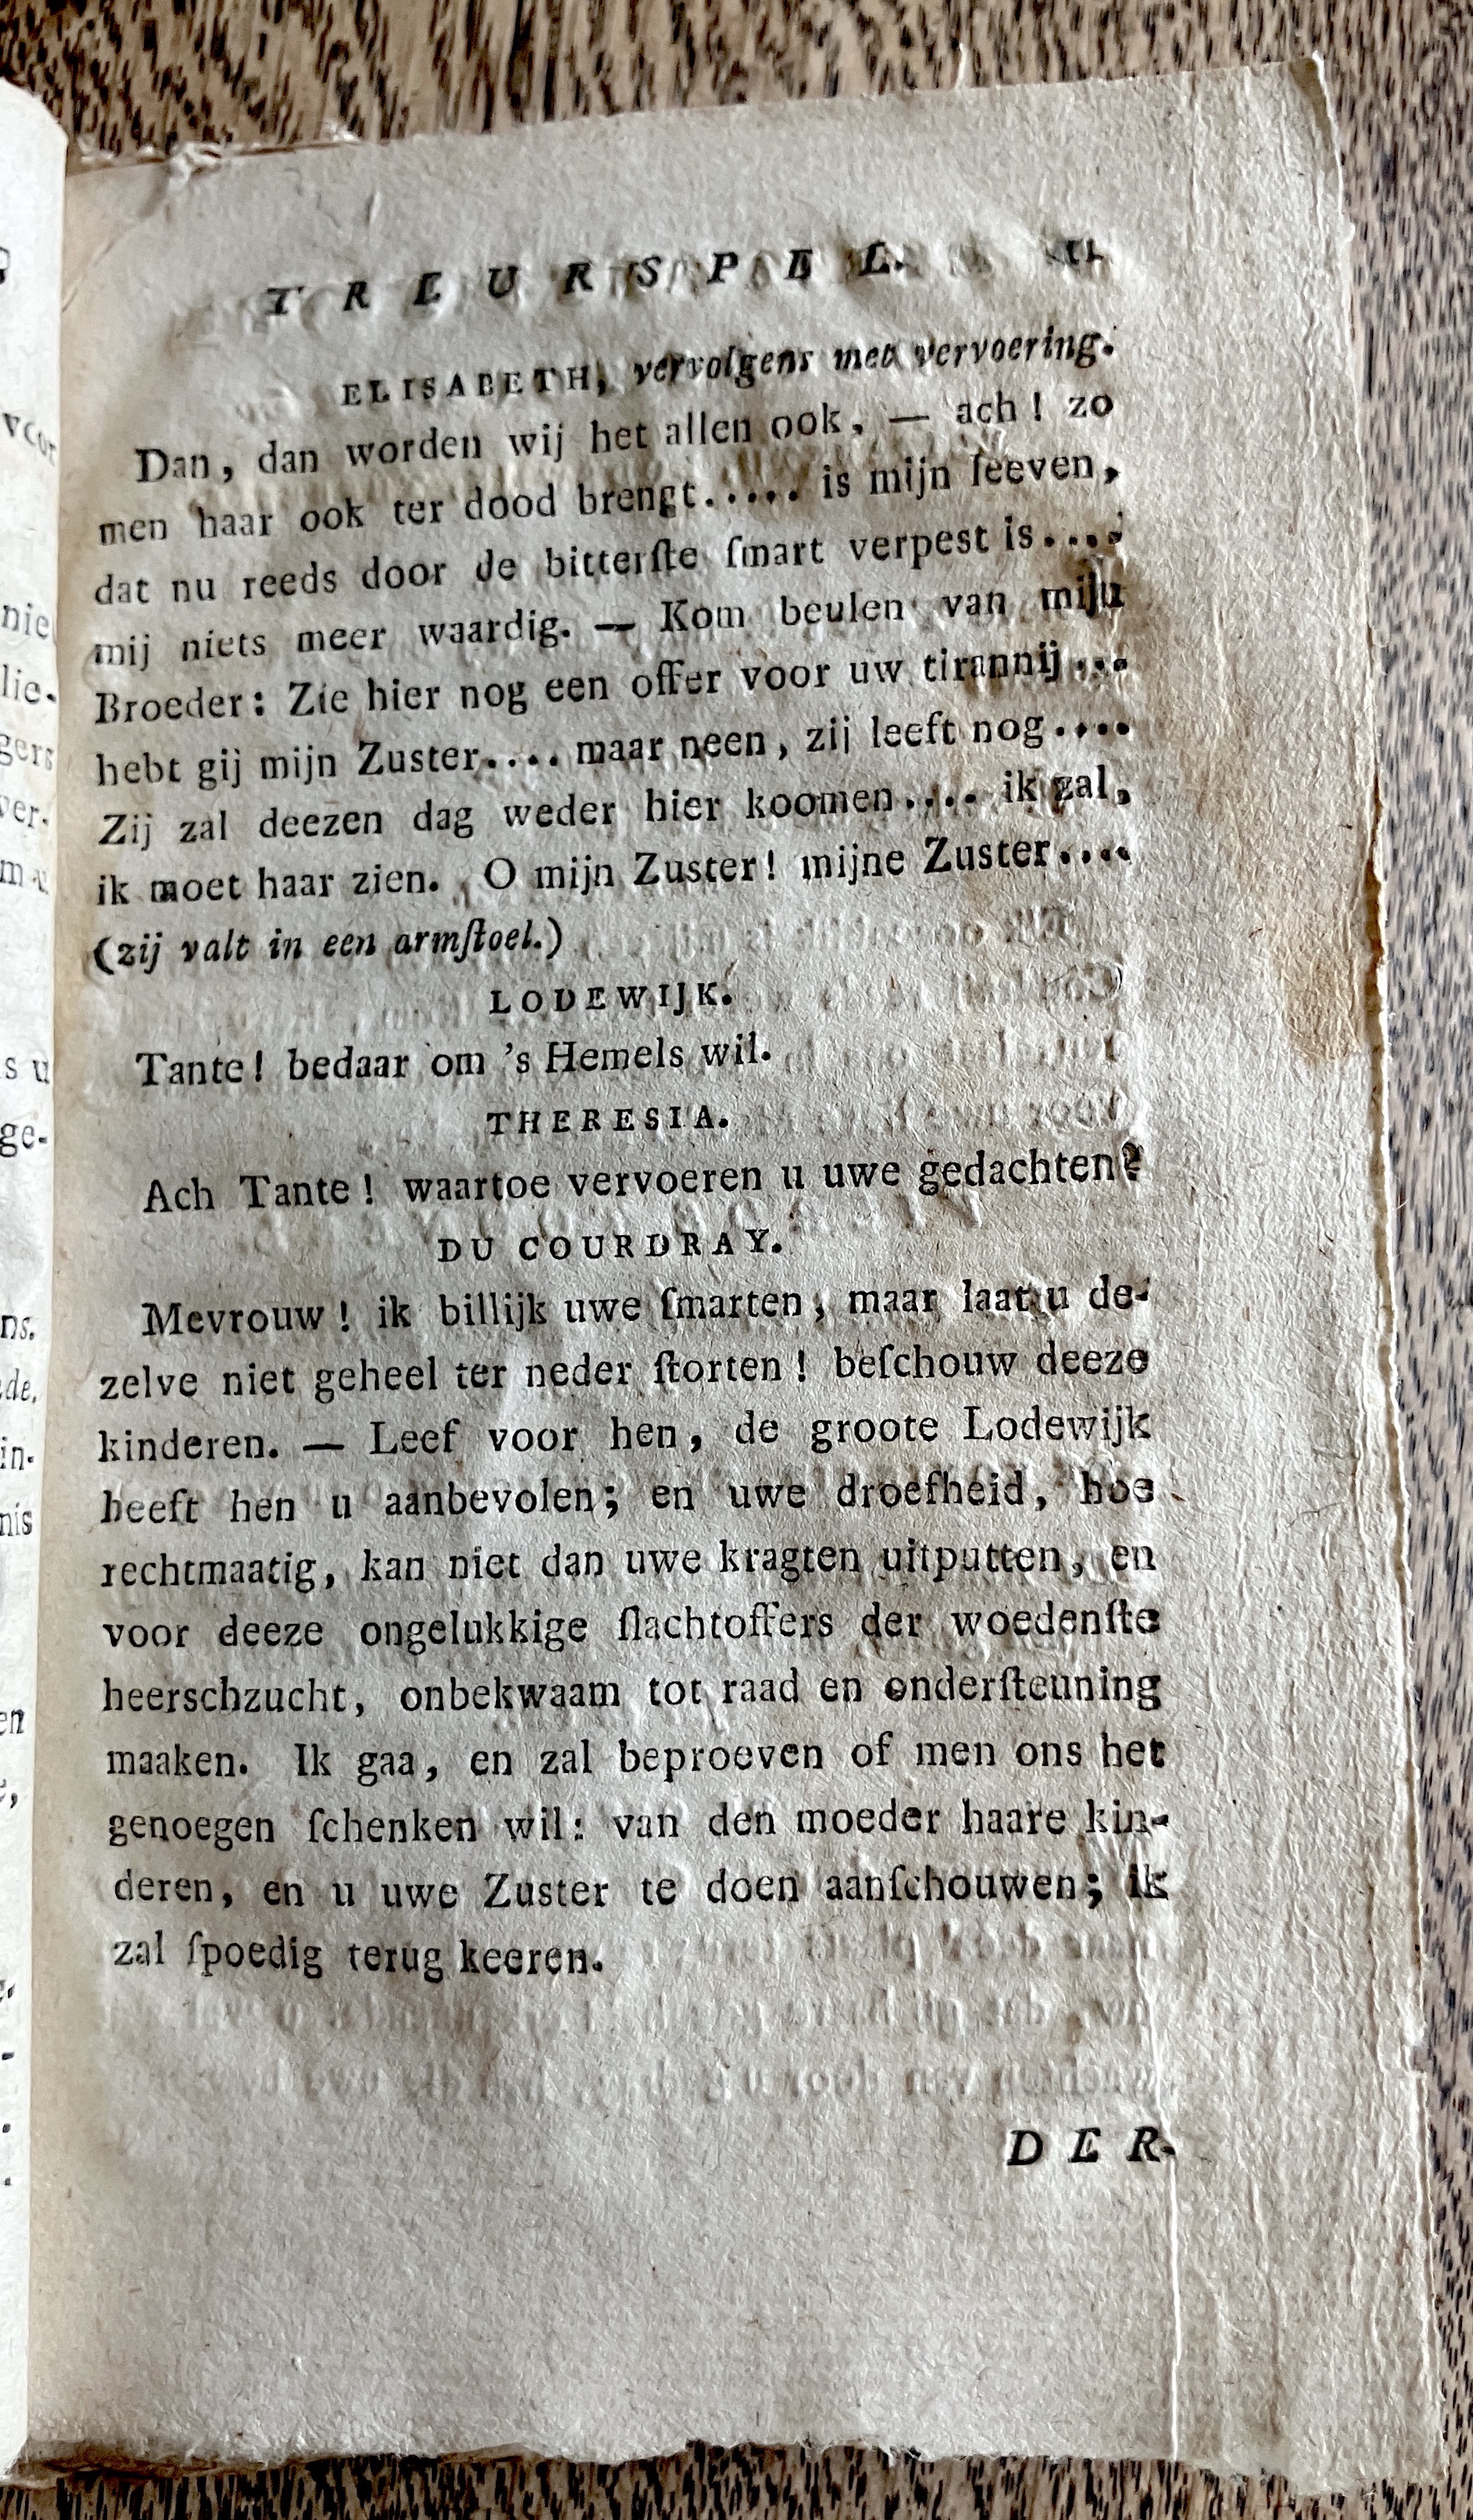 TREURSPEL.
ELISABETH, vervolgens met vervoering.
Dan, dan worden wij het allen ook, — ach! zo
men haar ook ter dood brengt..... is mijn leeven,
dat nu reeds door de bitterſte ſmart verpest is....
mij niets meer waardig. — Kom beulen van mijn
Broeder: Zie hier nog een offer voor uw tirannij...
hebt gij mijn Zuster.... maar neen, zij leeft nog....
Zij zal deezen dag weder hier koomen.... ik zal,
ik moet haar zien. O mijn Zuster! mijne Zuster....
(zij valt in een armſtoel.)
LODEWIJK.
Tante! bedaar om 's Hemels wil.
THERESIA.
Ach Tante! waartoe vervoeren u uwe gedachten?
DU COURDRAY.
Mevrouw! ik billijk uwe ſmarten, maar laat u de-
zelve niet geheel ter neder ſtorten! beſchouw deeze
kinderen. — Leef voor hen, de groote Lodewijk
heeft hen u aanbevolen; en uwe droefheid, hoe
rechtmaatig, kan niet dan uwe kragten uitputten, en
voor deeze ongelukkige ſlachtoffers der woedenſte
heerschzucht, onbekwaam tot raad en onderſteuning
maaken. Ik gaa, en zal beproeven of men ons het
genoegen ſchenken wil: van den moeder haare kin-
deren, en u uwe Zuster te doen aanſchouwen; ik
zal ſpoedig terug keeren.
DER-